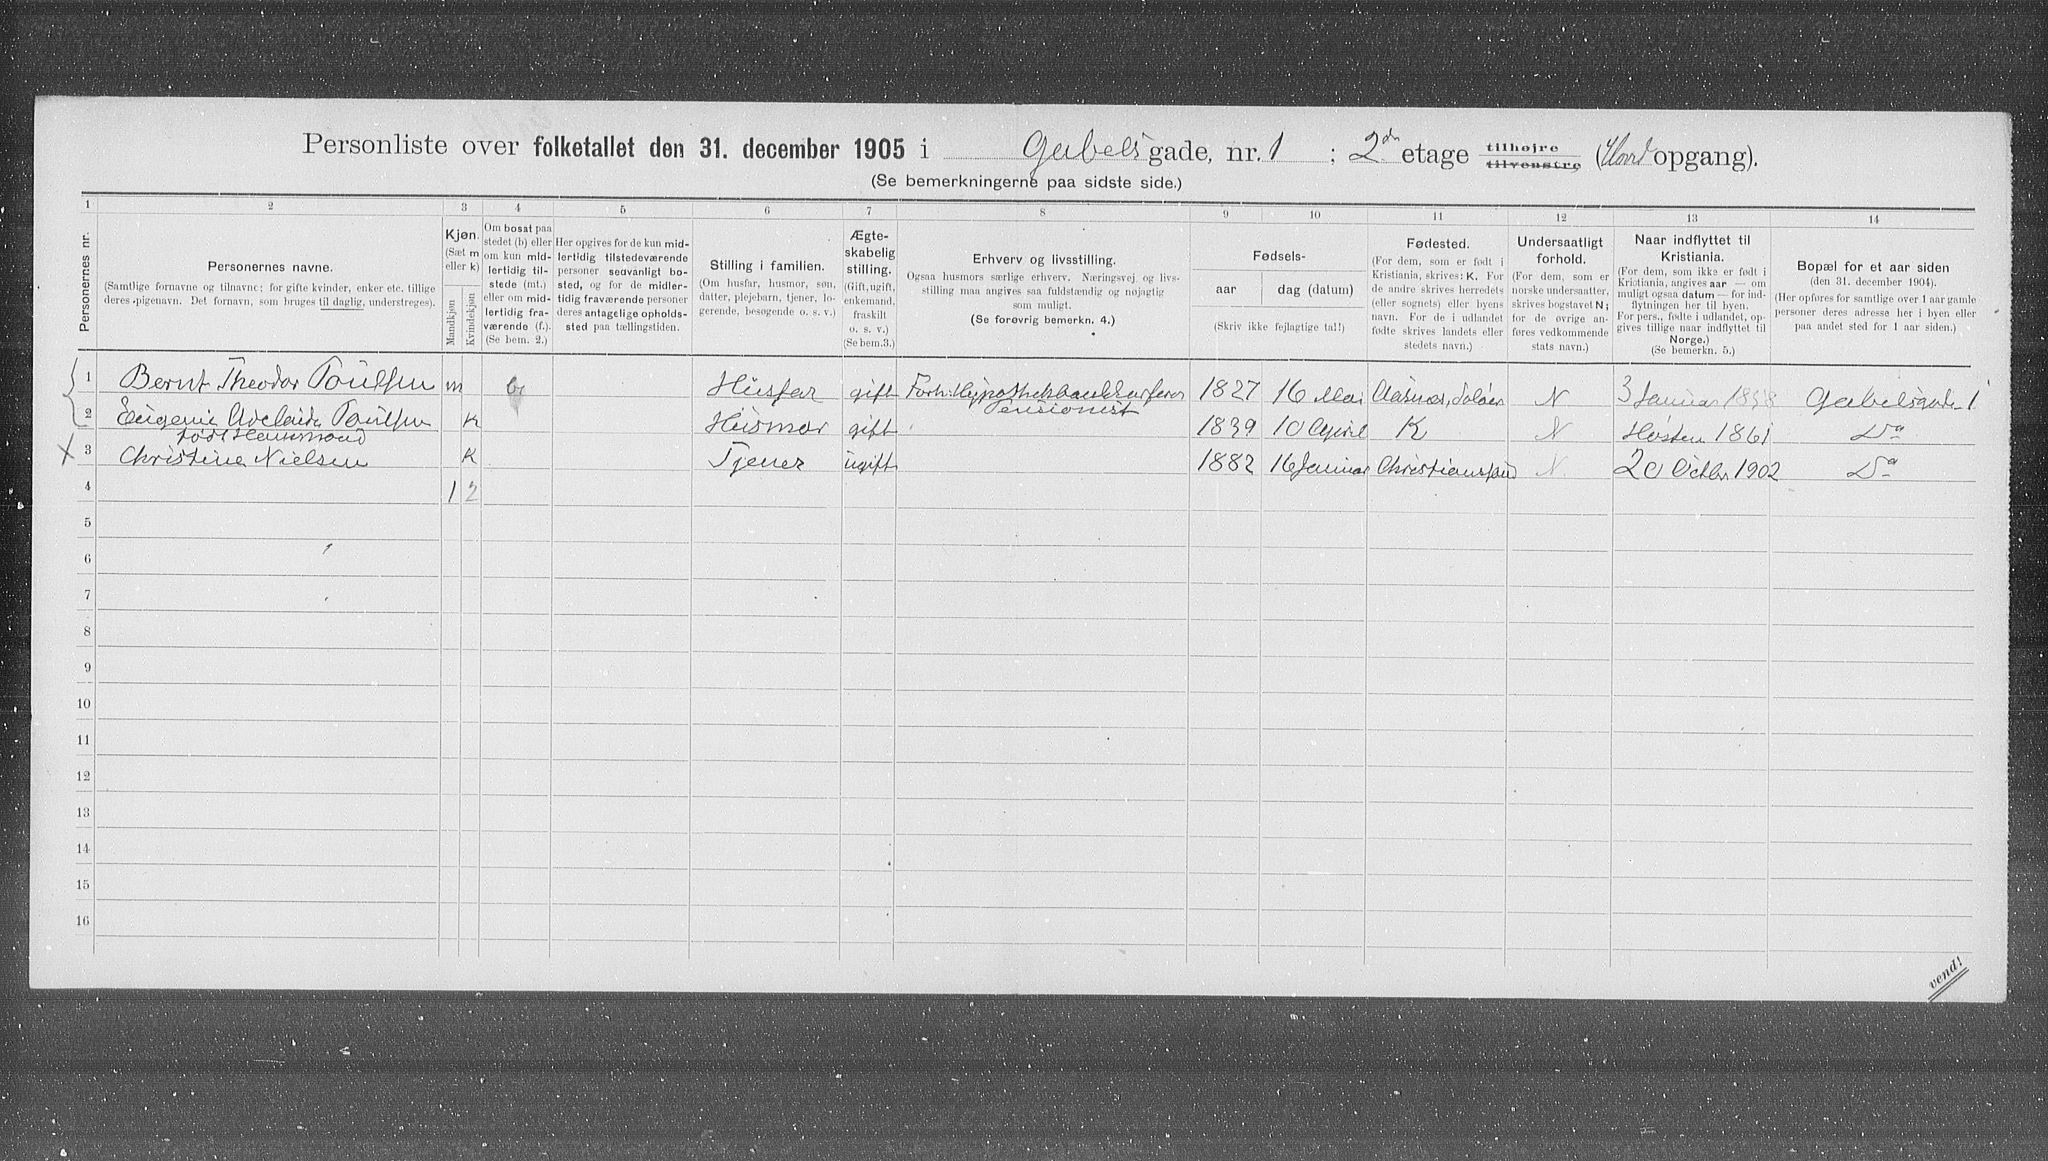 Personliste over folketallet den 31. december 1905 i Gabelsgade, nr. 1 ; 2den etage tilhøjre tilvenstre ( opgang).
(Se bemerkningerne paa sidste side.)
1 2 3 4 5 6 7 8 9 10 11 12 13 14
Personernes nr.
Personernes navne.
(Samtlige fornavne og tilnavne; for gifte kvinder, enker etc. tillige deres pigenavn. Det fornavn, som bruges til daglig, understreges).
Kjøn.
(Sæt m eller k)
Mandkjøn
Kvindekjøn
Om bosat paa stedet (b) eller om kun midlertidig tilstede (mt.) eller om midlertidig fraværende (f.). (Se bem. 2.)
Her opgives for de kun midlertidig tilstedeværende personer sedvanligt bosted, og for de midlertidig fraværende personer deres antagelige opholdssted paa tællingstiden.
Stilling i familien.
(Om husfar, husmor, søn, datter, plejebarn, tjener, logerende, besøgende o. s. v.)
Ægteskabelig stilling.
(Gift, ugift, enkemand, fraskilt o. s. v.) (Se bem.3.)
Erhverv og livsstilling.
Ogsaa husmors særlige erhverv. Næringsvej og livsstilling maa angives saa fuldstændig og nøjagtig som muligt.
(Se forøvrig bemerkn. 4.)
Fødsels-
aar
dag (datum)
(Skriv ikke fejlagtige tal!)
Fødested.
(For dem, som er født i Kristiania, skrives: K. For de andre skrives herredets (eller sognets) eller byens navn. For de i udlandet fødte skrives landets eller stedets navn.)
Undersaatligt forhold.
(For dem, som er norske undersaatter, skrives bogstavet N; for de øvrige anføres vedkommende stats navn.)
Naar indflyttet til Kristiania.
(For dem, som ikke er født i Kristiania, angives aar — om muligt ogsaa datum — for indflytningen her til byen. For pers., fødte i udlandet, opgives tillige naar indflyttet til Norge.)
(Se bemerkn. 5.)
Bopæl for et aar siden
(den 31. december 1904).
(Her opføres for samtlige over 1 aar gamle personer deres adresse her i byen eller paa andet sted for 1 aar siden.)
1 Bernt Theodor Poulsen m b Husfar gift Forh: Hypothekbankkasserer Pensionist 1827 16 Mai Aasnes, Soløer N 3 Januar 1858 Gabelsgade 1
2 Eugenie Adelaide Poulsen K Husmor gift 1839 10 April K N Høsten 1861 Do
født Hammond
3 Christine Nielsen K Tjener ugift 1882 16 Januar Christianssund N. 20 Octbr 1902 Do
4 1 2
5
6
7
8
9
10
11
12
13
14
15
16
vend!